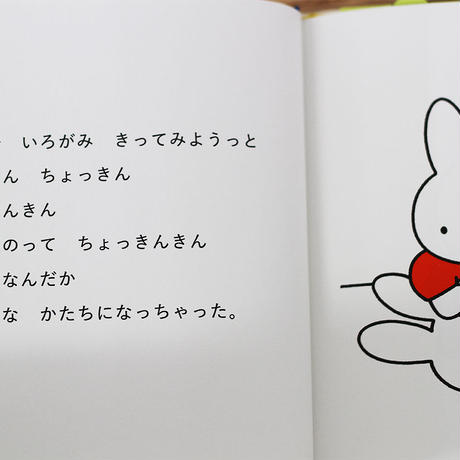 いろがみ　きってみようっと
ん　ちょっきん
んきん
のって　ちょっきんきん
なんだか
な　かたちになっちゃった。